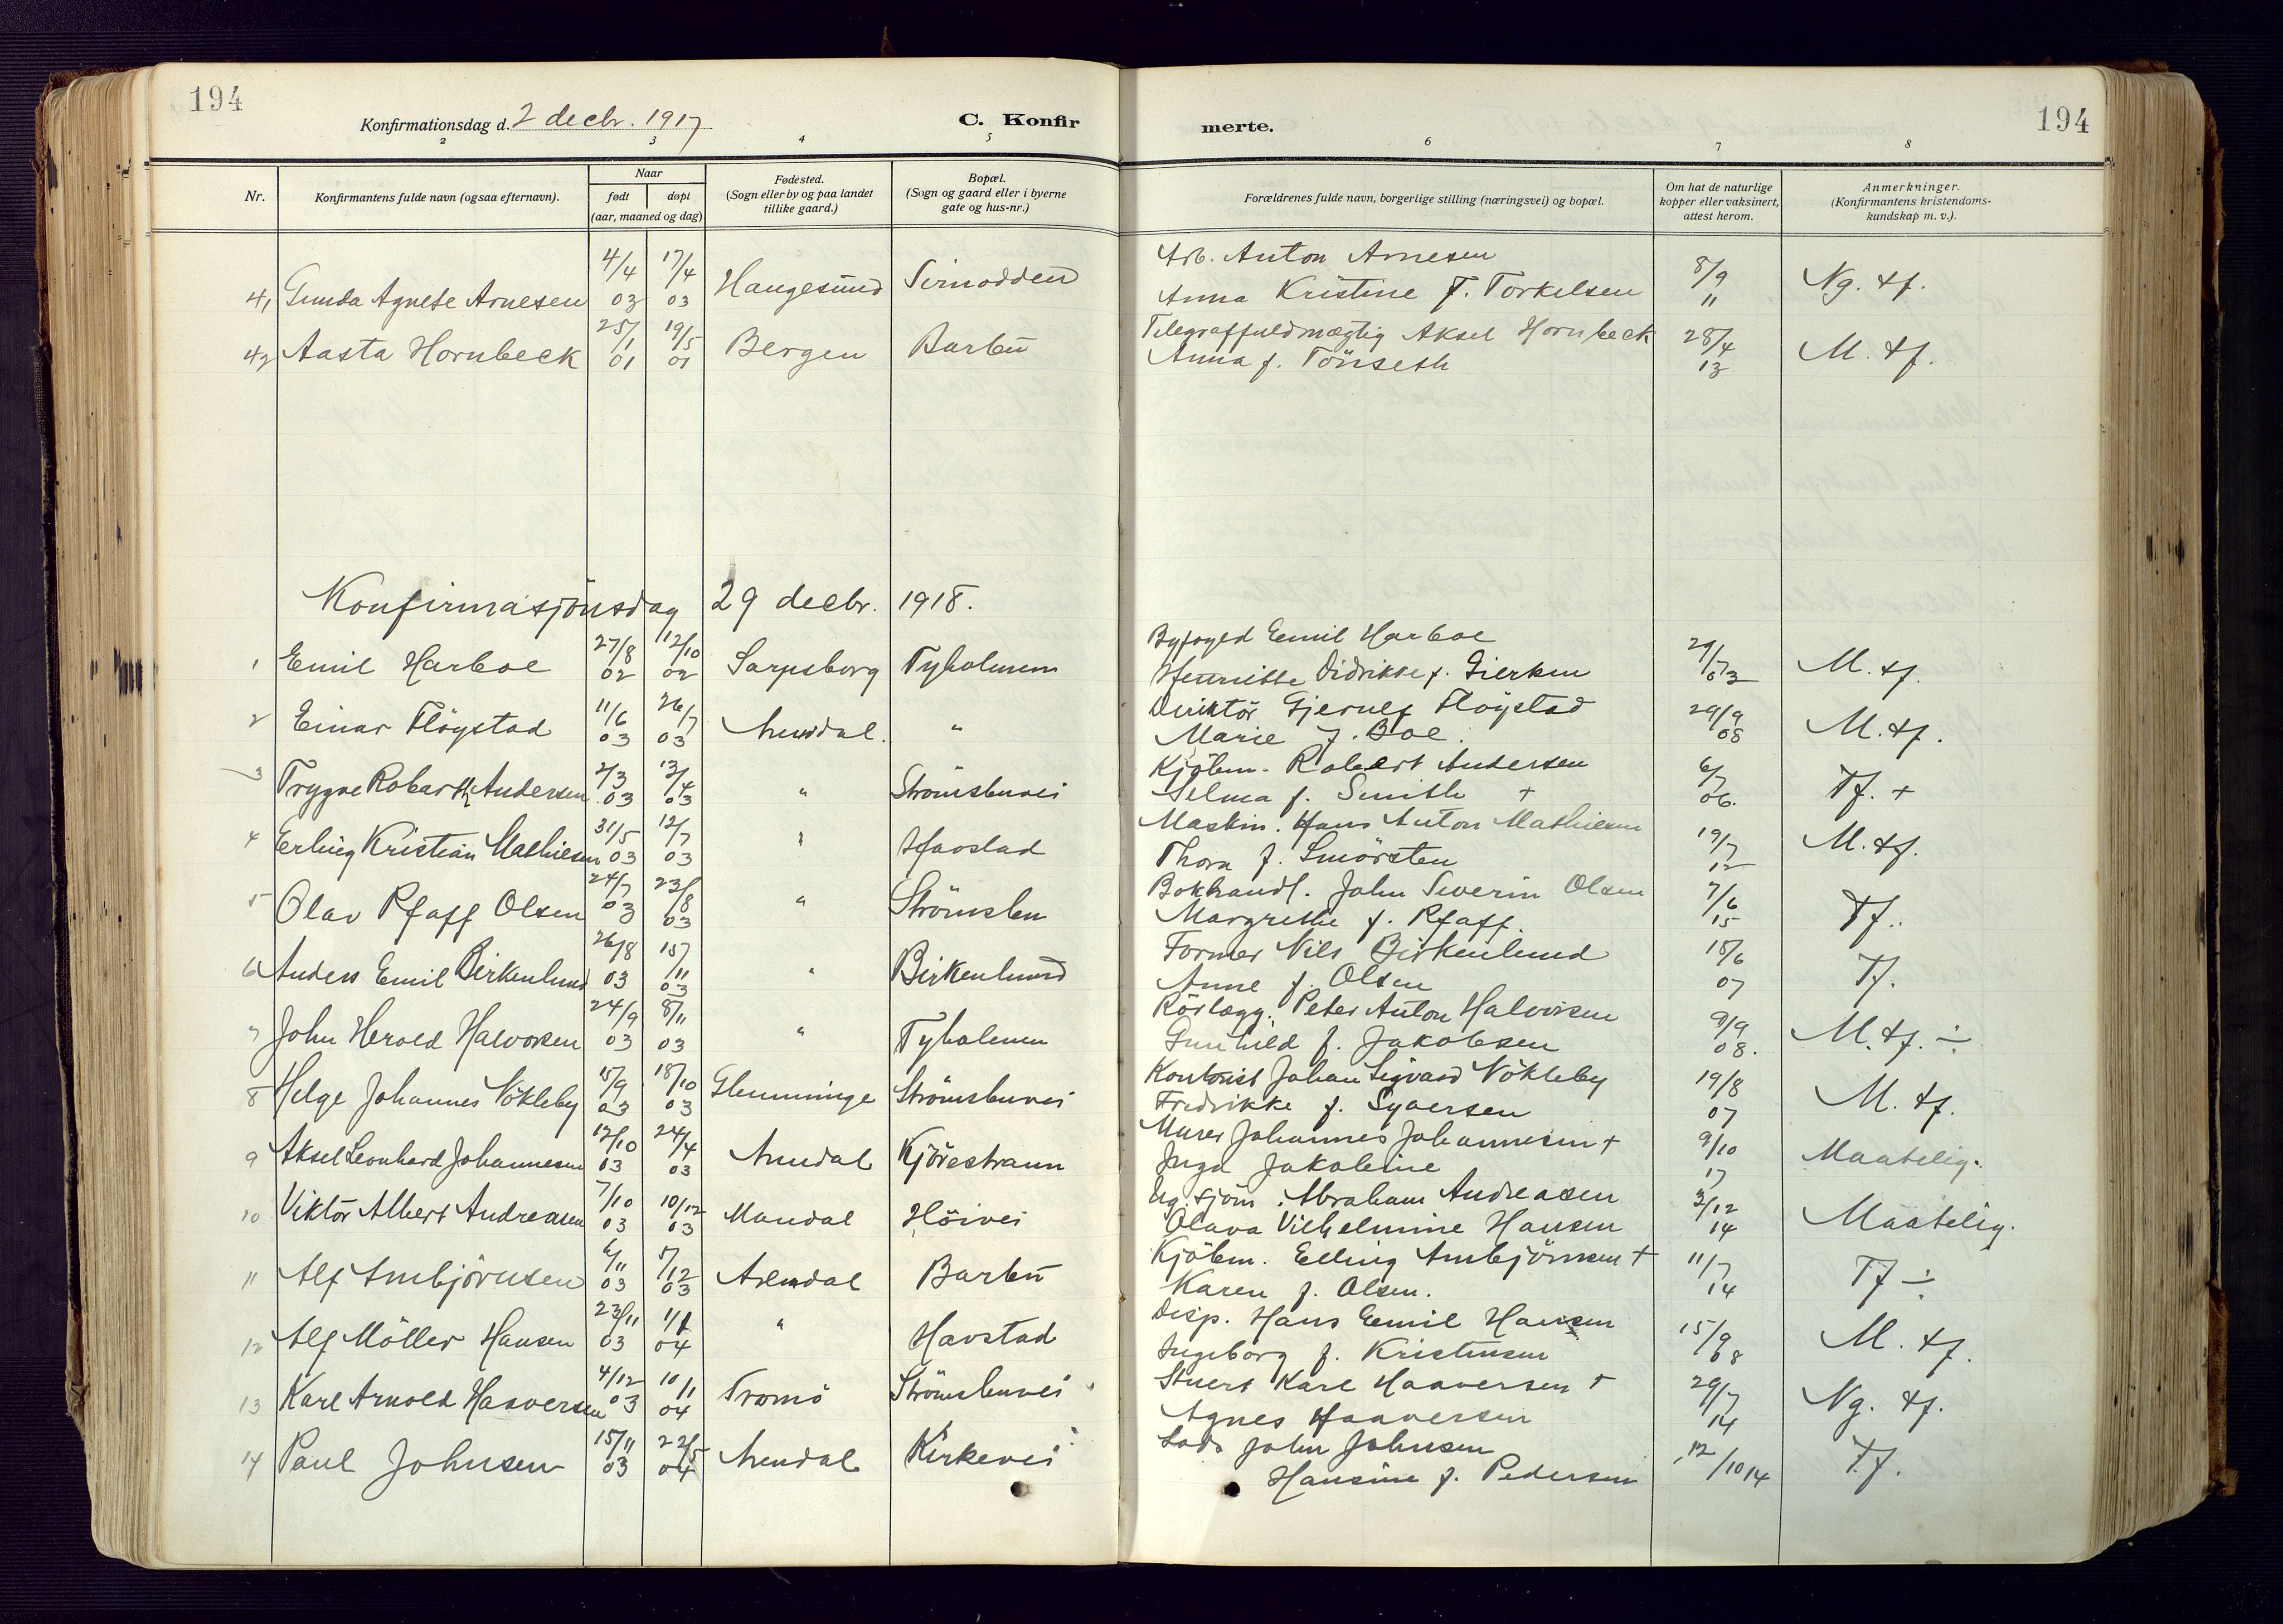 194
Konfirmationsdag d. 2 decbr. 1917
C. Konfir
merte.
194
2 3 4 5 6 7 8
Nr.
Konfirmantens fulde navn (ogsaa efternavn).
Naar
født døpt
(aar, maaned og dag)
Fødested.
(Sogn eller by og paa landet
tillike gaard.)
Bopæl.
(Sogn og gaard eller i byerne
gate og hus-nr.)
Forældrenes fulde navn, borgerlige stilling (næringsvei) og bopæl.
Om hat de naturlige
kopper eller vaksinert,
attest herom.
Anmerkninger.
(Konfirmantens kristendoms-
kundskap m. v.).
41 Gunda Agnete Arnesen 4/4 03 17/4 03 Haugesund Sirnodden Arb. Anton Arnesen
Anna Kristine f. Torkelsen 8/9 11 Ng. tf.
42 Aasta Hornbeck 25/1 01 19/5 01 Bergen Barbu Telegraffuldmægtig Aksel Hornbeck
Anna f. Tönseth 28/4 13 M. tf.
Konfirmasjonsdag 29 decbr. 1918.
1 Emil Harboe 27/8 02 12/10 02 Sarpsborg Tyholmen Byfoged Emil Harboe
Henriette Didrikke f. Gierken 29/7 03 M. tf.
2 Einar Flögstad 11/6 03 26/7 03 Arendal. " Direktör Gjerulf Flögstad
Marie f. Boe. 29/9 08 M. tf.
3 Trygve Robarth Andersen 2/3 03 13/4 03 " Strömsbuvei Kjöbm. Robert Andersen
Selma f. Smith + 6/7 06. Tf. +
4 Erling Kristian Mathiesen 31/5 03 12/7 03 " Havstad Maskin. Hans Anton Mathiesen
Thora f. Smörsten 19/7 12 M. tf.
5 Olav Pfaff Olsen 24/7 03 23/8 03 " Strömsbu Bokhandl. John Severin Olsen
Margrethe f. Pfaff. 7/6 15 Tf.
6 Anders Emil Birkenlund 26/8 03 15/11 03 " Birkenlund Former Nils Birkenlund
Anne f. Olsen 18/6 07 Tf.
7 John Herold Halvorsen 24/9 03 8/11 03 " Tyholmen Rörlægg. Peter Anton Halvorsen
Gunhild f. Jakobsen 9/9 08. M. tf. ÷
8 Helge Johannes Nökleby 15/9 03 18/10 03 Glemminge Strömsbuvei Kontorist Johan Sigvard Nökleby
Fredrikke f. Syversen 19/8 07 M. tf.
9 Aksel Leonhard Johannesen 12/10 03 24/4 03 Arendal Kjörestrann Murer Johannes Johannesen +
Inga Jakobine 9/10 17 Maatelig.
10 Viktor Albert Andreasen 7/10 03 10/12 03 Mandal Höivei Ug. sjöm. Abraham Andreasen
Olava Vilhelmine Hansen 3/12 14 Maatelig.
11 Alf Arnbjörnsen 6/11 03 5/12 03 Arendal Barbu Kjöbm. Elling Arnbjörnsen +
Karen f. Olsen. 11/7 14 Tf ÷
12 Alf Möller Hansen 23/11 03 1/1 04 " Havstad Disp. Hans Emil Hansen
Ingeborg f. Kristensen 15/9 08 M. tf.
13 Karl Arnold Haaversen 4/12 03 10/1 04 Tromö Strömsbuvei Stuert Karl Haaversen +
Agnes Haaversen 29/7 14 Ng. tf.
14 Paul Johnsen 15/11 03 22/5 04 Arendal Kirkevei Lods John Johnsen
Hansine f. Pedersen 12/10 14 Tf.